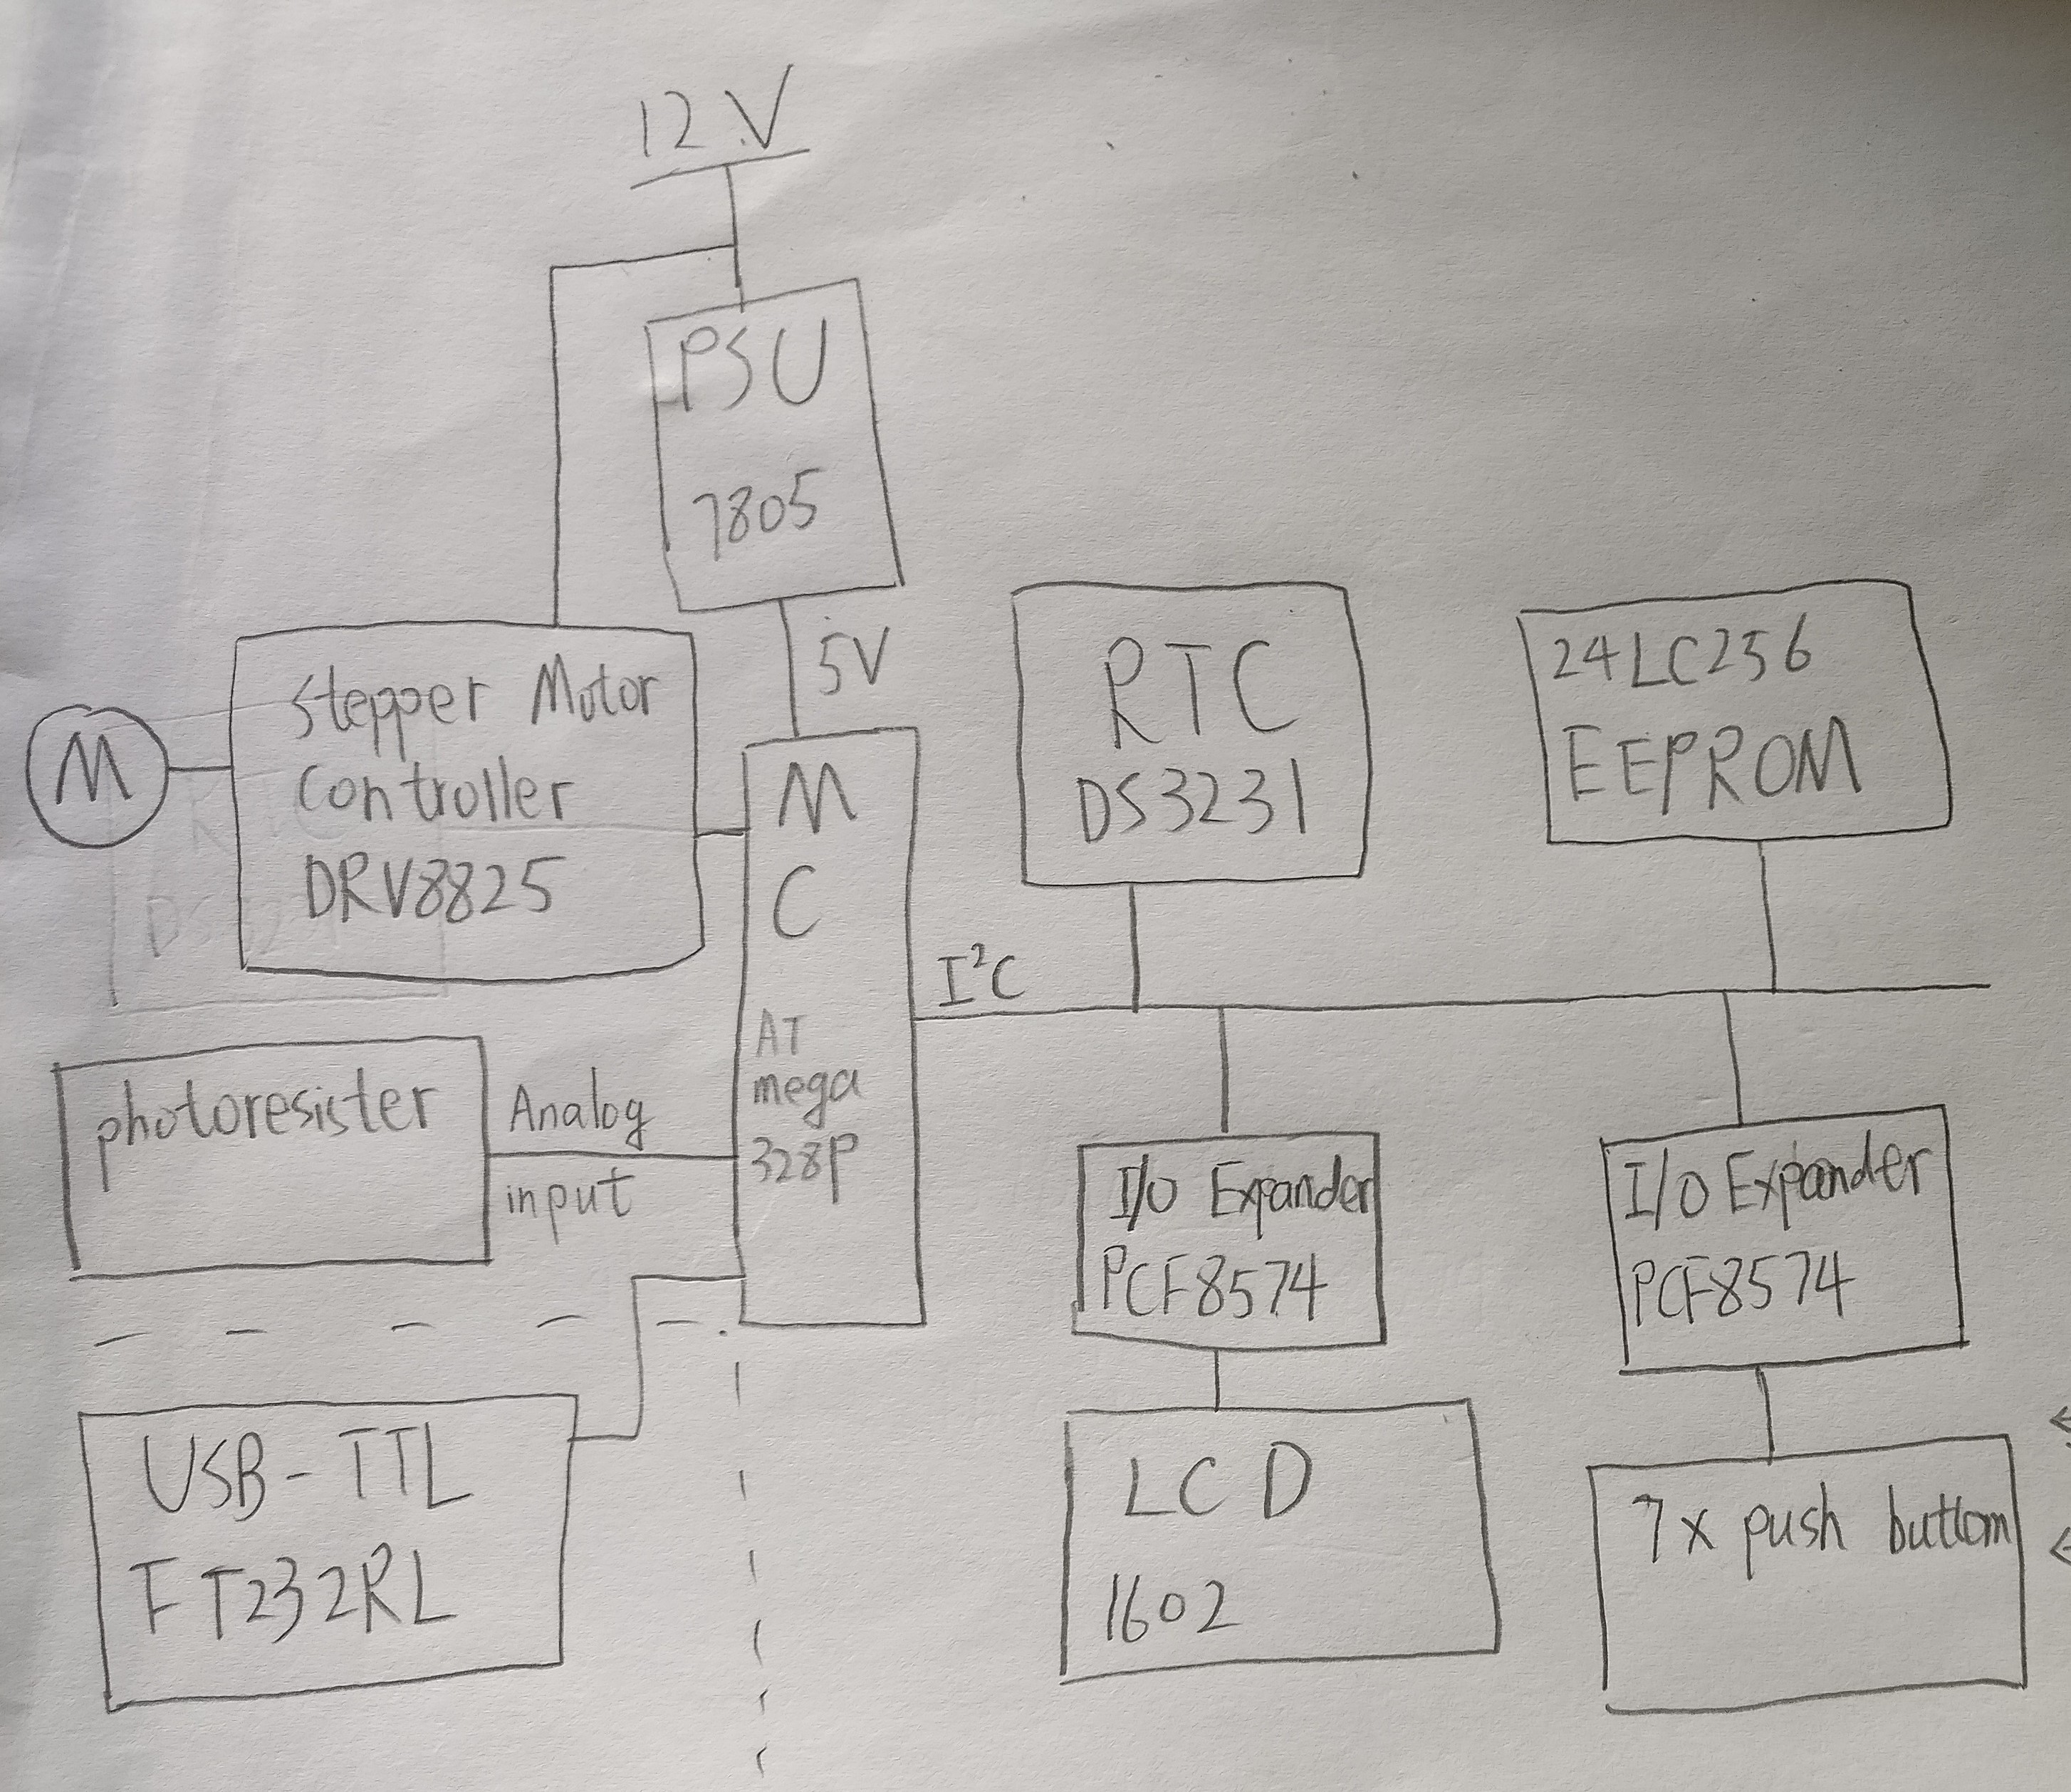 12V
PSU
7805
5V
Stepper Motor
Controller
DRV8825
M
M
C
AT
mega
328P
RTC
DS3231
24LC256
EEPROM
I²C
photoresister
Analog
input
I/O Expander
PCF8574
I/O Expander
PCF8574
USB-TTL
FT232RL
LCD
1602
7x push buttom